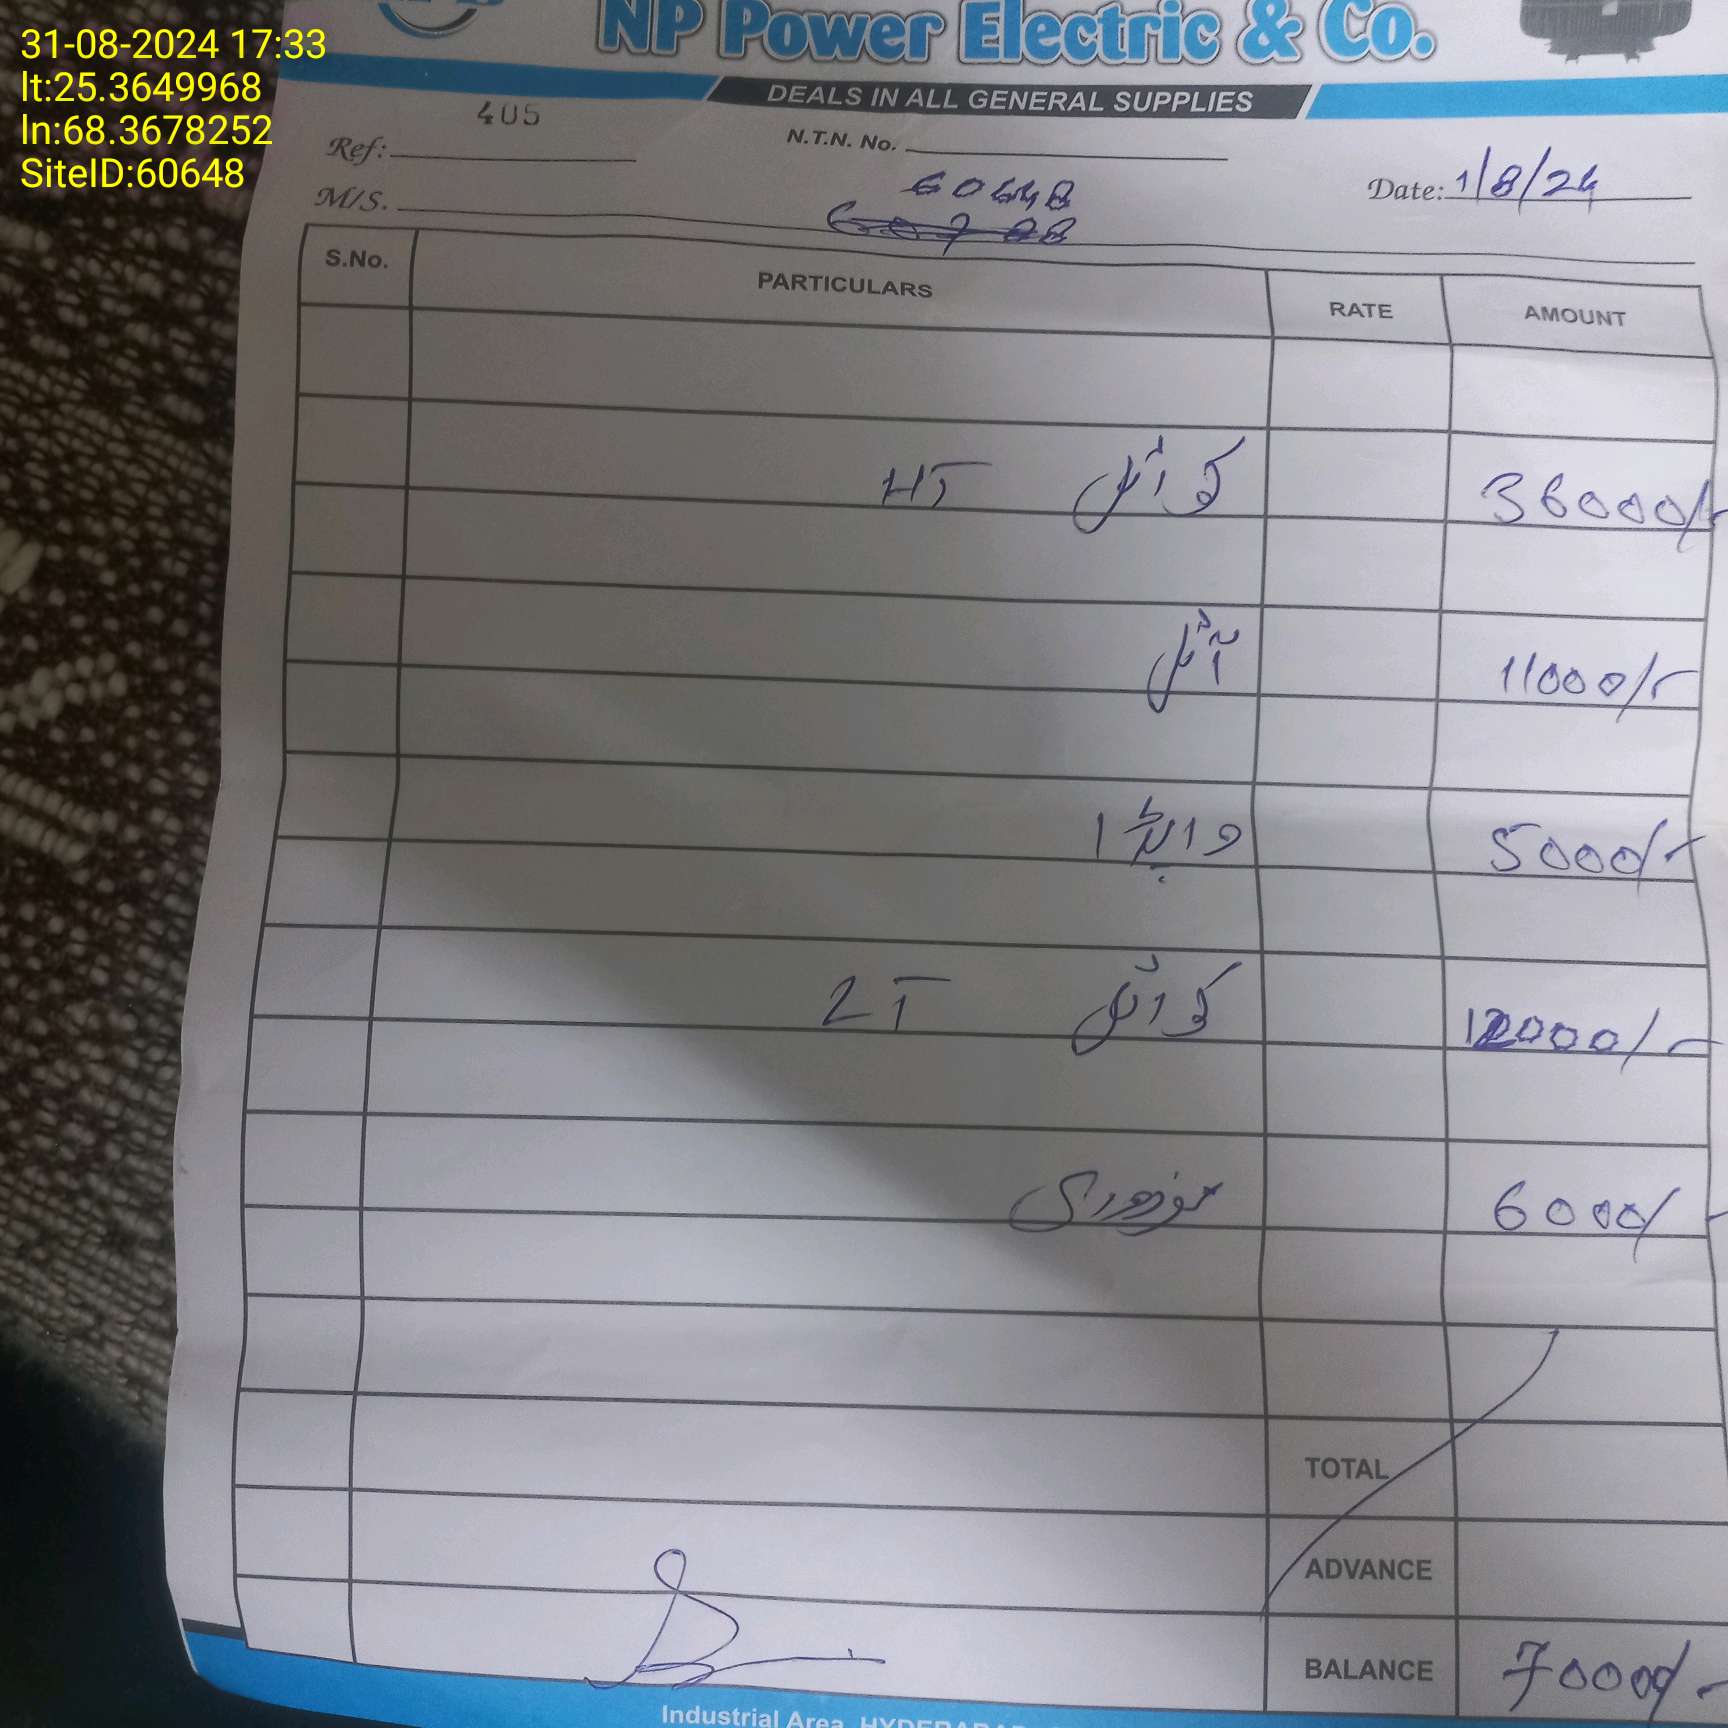 31-08-2024 17:33
lt:25.3649968
ln:68.3678252
SiteID:60648
NP Power Electric & Co.
DEALS IN ALL GENERAL SUPPLIES
Ref: 405
N.T.N. No.
Date: 1/8/24
M/S. 60648
S.No. PARTICULARS RATE AMOUNT
کوائل HT 36000/-
آئل 11000/-
5000/-
کوائل LT 12000/-
مزدوری 6000/-
TOTAL
ADVANCE
BALANCE 70000/-
Industrial Area, HYDERABAD